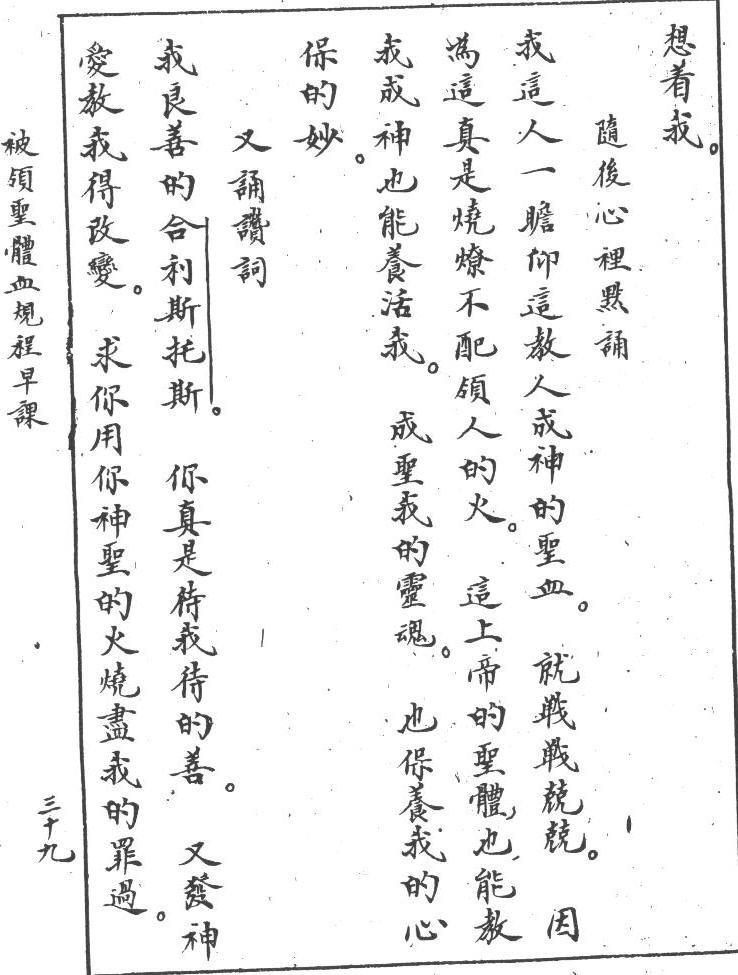 想着我。
隨後心裡默誦
我這人一瞻仰這教人成神的聖血。就戰戰兢兢。因
為這真是燒燎不配領人的火。這上帝的聖體,也能教
我成神也能養活我。成聖我的靈魂。也保養我的心
保的妙。
又誦讚詞
我良善的合利斯托斯。你真是待我待的善。又發神
愛教我得改變。求你用你神聖的火燒盡我的罪過。
被領聖體血規程早課
三十九